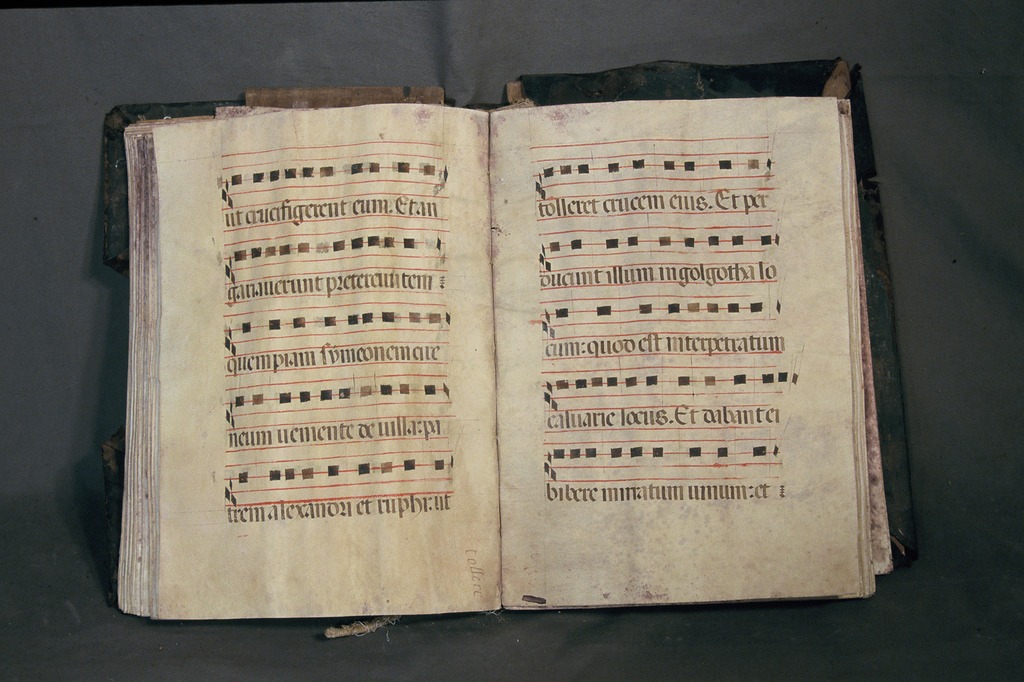 ut crucifigerent eum. Et an
gariauerunt pretereuntem
quempiam symeonem cire
neum uenientte de uilla: pa
trem alexandri et ruphi: ut
tollere
tolleret crucem eius. Et per
ducunt illum in golgotha lo
cum: quod est interpretatum
caluarie locus. Et dabant ei
bibere mirratum uinum: et